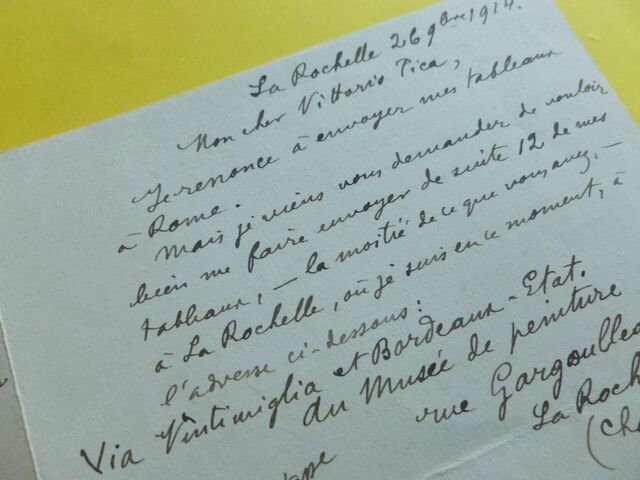 La Rochelle 26 9bre 1914.
Mon cher Vittorio Pica,
Je renonce à envoyer mes tableaux
à Rome.
Mais je viens vous demander de vouloir
bien me faire envoyer de suite 12 de mes
tableaux, — la moitié de ce que vous avez, —
à La Rochelle, où je suis en ce moment, à
l'adresse ci-dessous :
Via Vintimiglia et Bordeaux-Etat.
du Musée de peinture
rue Gargoulleau
La Roch
(Cha